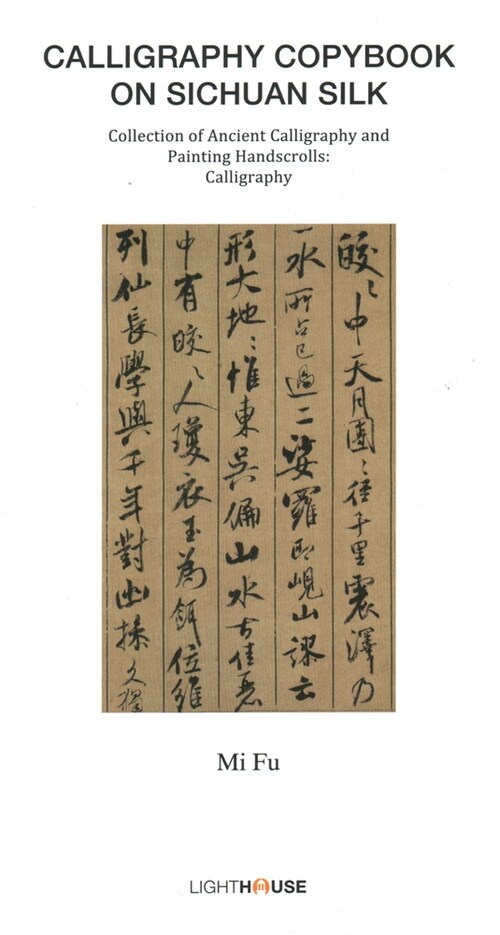 CALLIGRAPHY COPYBOOK
ON SICHUAN SILK
Collection of Ancient Calligraphy and
Painting Handscrolls:
Calligraphy
皎〻中天月團〻徑千里震澤乃
一水所占已過二娑羅即峴山謬云
形大地〻惟東吳偏山水古佳麗
中有皎〻人瓊衣玉為餌位維
列仙長學與千年對幽操久獨
Mi Fu
LIGHTHOUSE